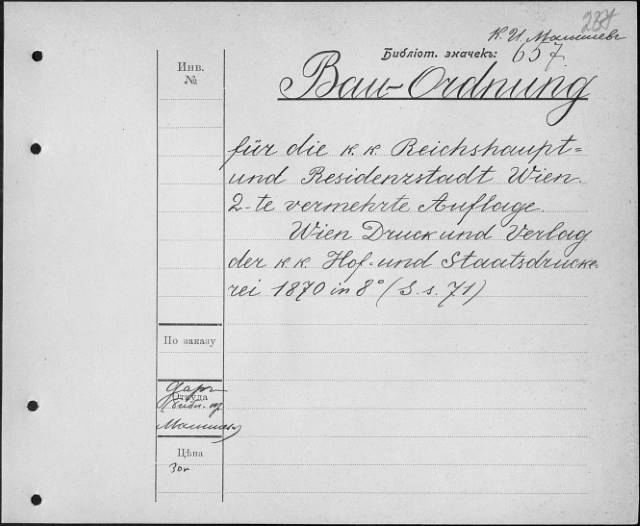 234
К. И. Малышевъ
Библіот. значекъ: 657.
Bau-Ordnung
Инв.
№
für die k. k. Reichshaupt=
und Residenzstadt Wien.
2-te vermehrte Auflage.
Wien Druck und Verlag
der k. k. Hof- und Staatsdrucke-
rei 1870 in 8° (S. s. 71)
По заказу
Даръ
Откуда
библ.
Малышева
Цѣна